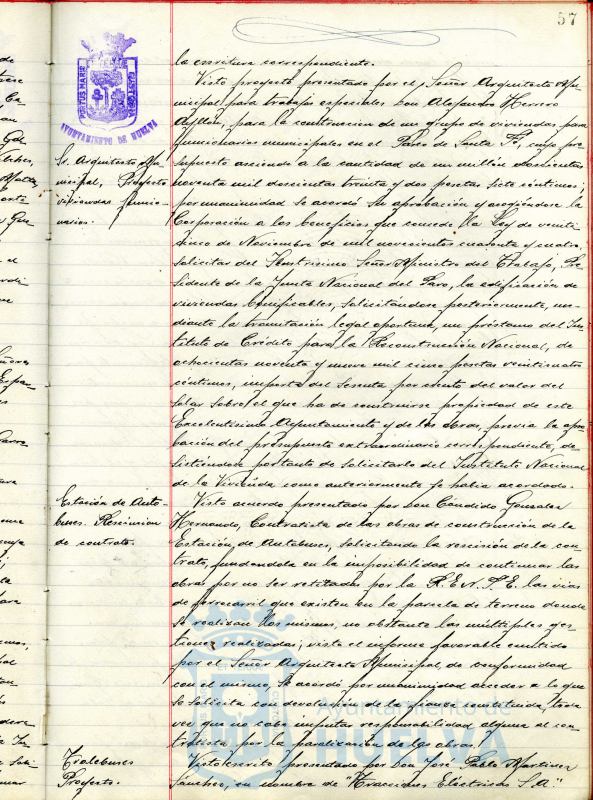 57
PORTUS MARIS ET TERRAE CUSTODIA
AYUNTAMIENTO DE HUELVA
la escritura correspondiente.
Sr. Arquitecto Mu-
nicipal, Proyecto
viviendas funcio-
narios.
Visto proyecto presentado por el Señor Arquitecto Mu-
nicipal para trabajos especiales Don Alejandro Herrero
Ayllón, para la construcción de un grupo de viviendas para
funcionarios municipales en el Paseo de Santa Fé, cuyo pre-
supuesto asciende a la cantidad de un millón doscientas
noventa mil doscientas treinta y dos pesetas siete céntimos;
por unanimidad se acordó su aprobación y acogiéndose la
Corporación a los beneficios que concede la Ley de veinti-
cinco de Noviembre de mil novecientos cuarenta y cuatro,
solicitar del Ilustrísimo Señor Ministro del Trabajo, Pre-
sidente de la Junta Nacional del Paro, la edificación de
viviendas bonificables, solicitándose posteriormente, me-
diante la tramitación legal oportuna, un préstamo del Ins-
tituto de Crédito para la Reconstrucción Nacional, de
ochocientas noventa y nueve mil cinco pesetas veinticuatro
céntimos, importe del sesenta por ciento del valor del
solar sobre el que ha de construirse propiedad de este
Excelentísimo Ayuntamiento y de las obras, previa la apro-
bación del presupuesto extraordinario correspondiente, de-
sistiéndose por tanto de solicitarlo del Instituto Nacional
de la Vivienda como anteriormente se había acordado.
Estación de Auto-
buses. Rescisión
de contrato.
Visto acuerdo presentado por Don Cándido González
Hernando, Contratista de las obras de construcción de la
Estación de Autobuses, solicitando la rescisión de la con-
trata, fundándola en la imposibilidad de continuar las
obras por no ser retiradas por la R.E.N.F.E. las vías
de ferrocarril que existen en la parcela de terreno donde
se realizan las mismas, no obstante las múltiples ges-
tiones realizadas; visto el informe favorable emitido
por el Señor Arquitecto Municipal, de conformidad
con el mismo se acordó por unanimidad acceder a lo que
se solicita con devolución de la fianza constituida, toda
vez que no cabe imputar responsabilidad alguna al con-
tratista por la paralización de las obras.
Trolebuses
Proyecto.
Visto escrito presentado por Don José Pablo Martínez
Sánchez, en nombre de "Tracciones Eléctricas S.A."
Ayuntamiento de
HUELVA